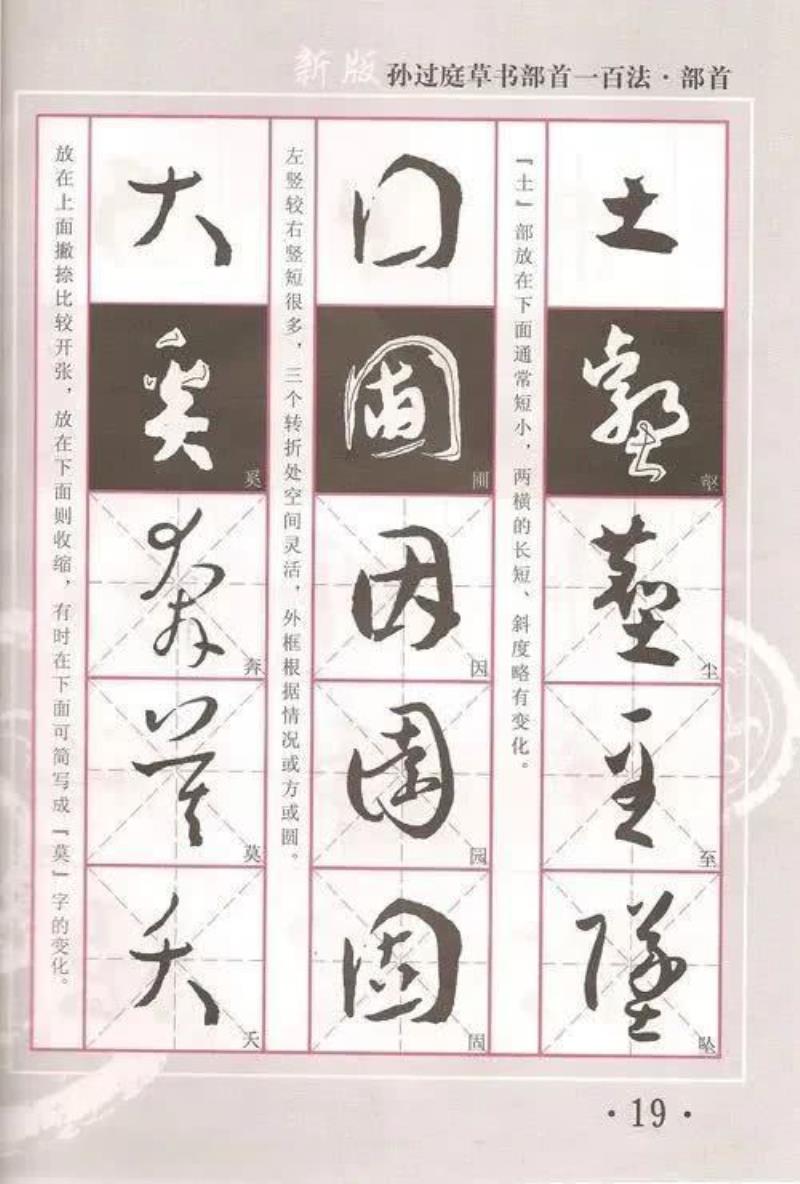 新版 孙过庭草书部首一百法·部首
土
壑
尘
至
坠
『土』部放在下面通常短小，两横的长短、斜度略有变化。
囗
圃
因
园
固
左竖较右竖短很多，三个转折处空间灵活，外框根据情况或方或圆。
大
奚
奔
莫
夭
放在上面撇捺比较开张，放在下面则收缩，有时在下面可简写成『莫』字的变化。
·19·